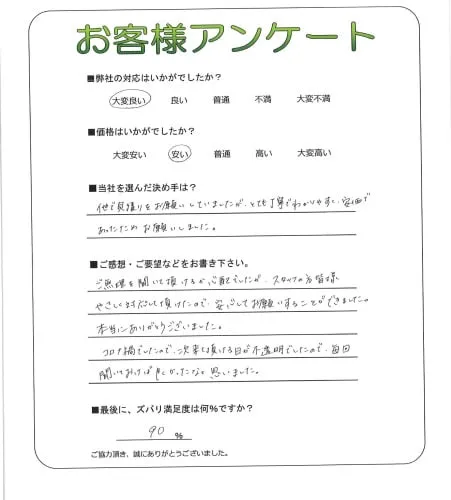 お客様アンケート
■弊社の対応はいかがでしたか？
大変良い 良い 普通 不満 大変不満
■価格はいかがでしたか？
大変安い 安い 普通 高い 大変高い
■当社を選んだ決め手は？
他で見積りをお願いしていましたが、とても丁寧でわかりやすく、安価で
あったためお願いしました。
■ご感想・ご要望などをお書き下さい。
ご無理を聞いて頂けるか心配でしたが、スタッフの方皆様
やさしく対応して頂けたので、安心してお願いすることができました。
本当にありがとうございました。
コロナ禍でしたので、次来て頂ける日が不透明でしたので、毎回
聞いておけば良かったなと思いました。
■最後に、ズバリ満足度は何%ですか？
90 %
ご協力頂き、誠にありがとうございました。